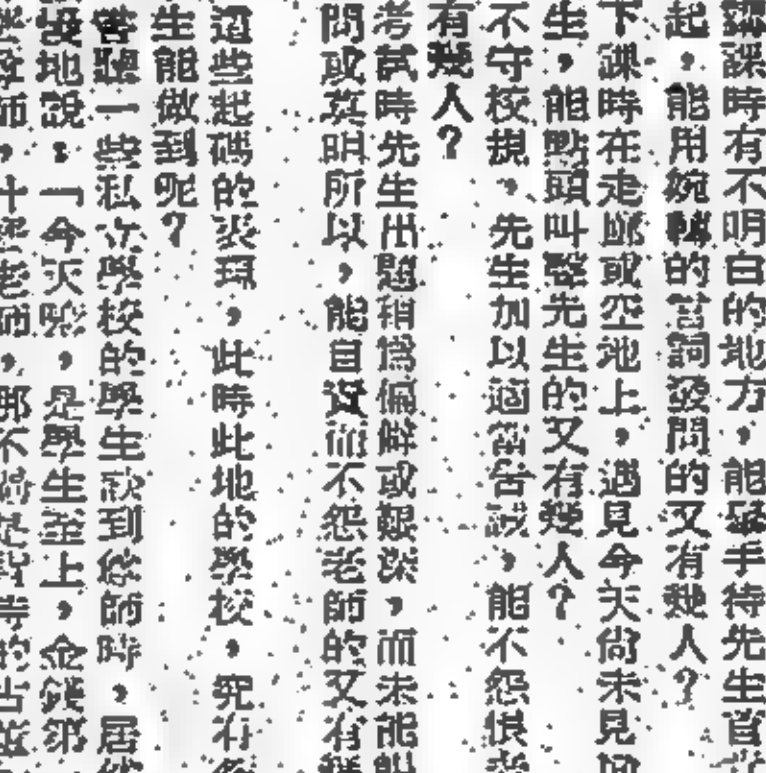 課時有不明白的地方，能舉手待先生
起，能用婉轉的言詞發問的又有幾人？
下課時在走廊或空地上，遇見今天尚未見
生，能點頭叫聲先生的又有幾人？
不守校規，先生加以適當告誡，能不怨恨
有幾人？
考試時先生出題稍為偏僻或艱深，而未能
問或莫明所以，能自責而不怨老師的又有
這些起碼的表現，此時此地的學校，究有
生能做到呢？
曾聽一些私立學校的學生談到老師時，居
地說：「今天呢，是學生至上，金錢
師，什麼老師，那不過是